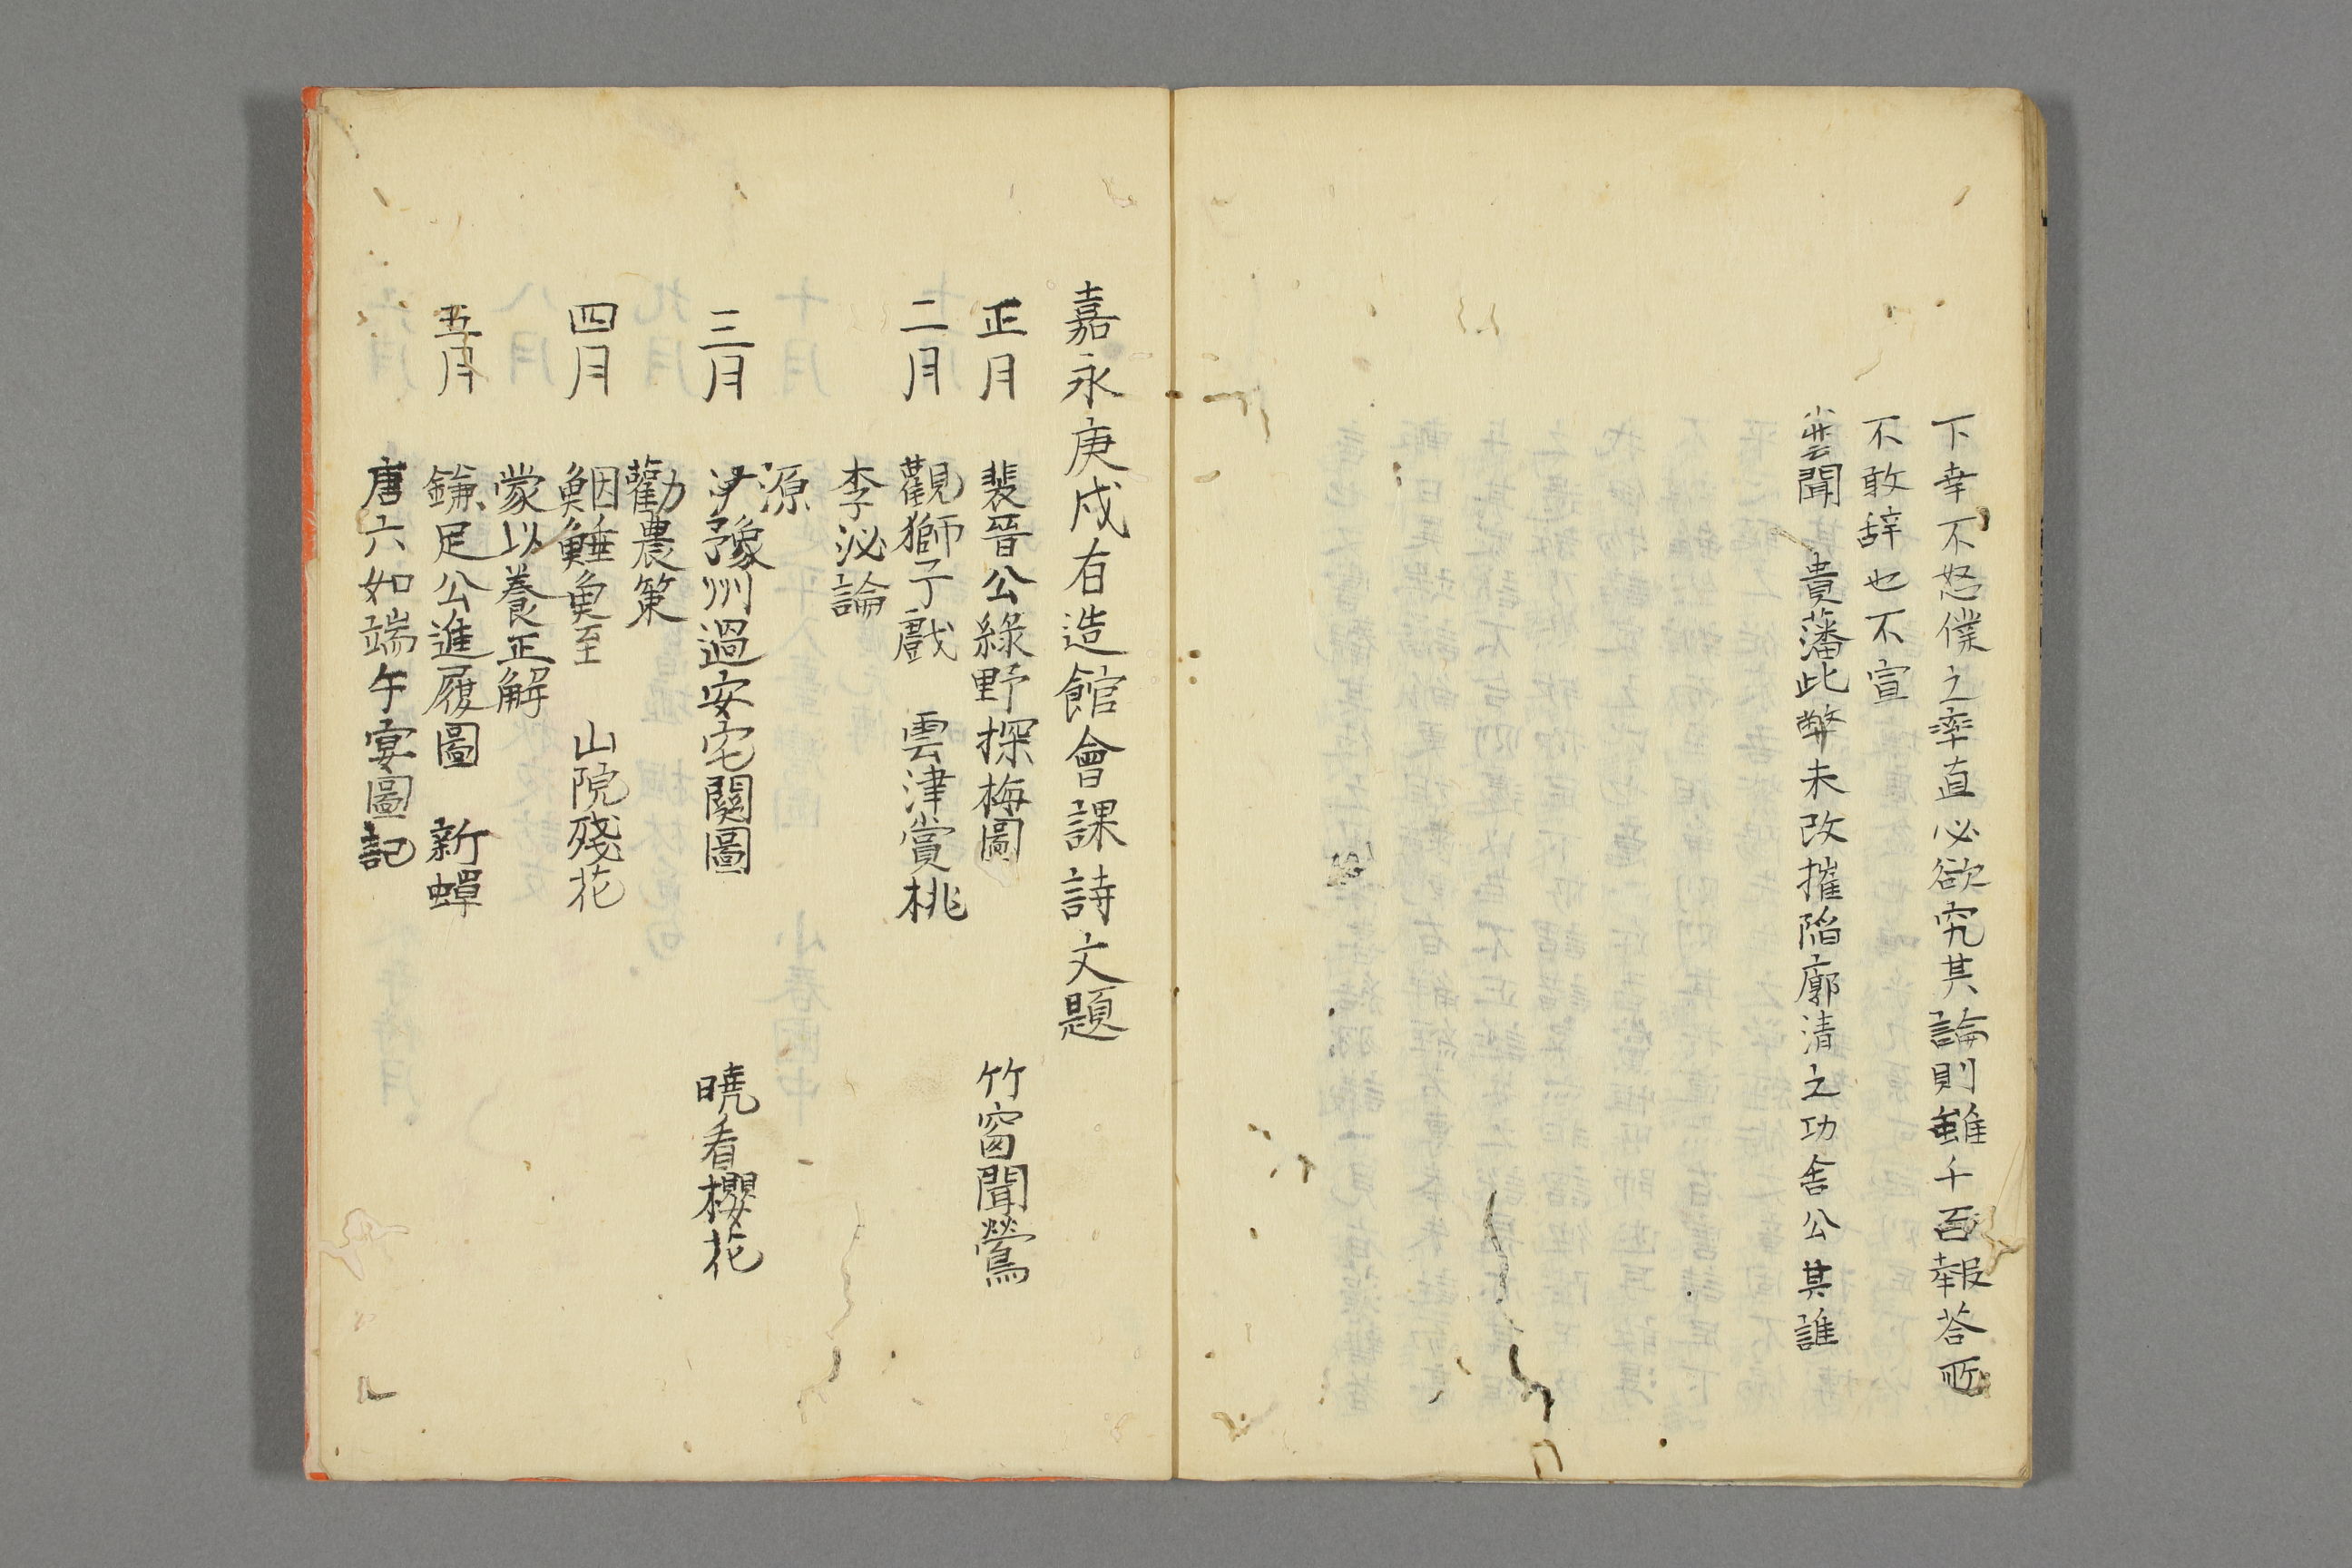 下幸不怒僕之率直必欲究其論則雖千百報荅所
不敢辞也不宣
聞 貴藩此弊未改摧陥廓清之功舎公其誰
嘉永庚戌有造館會課詩文題
正月 裴晉公綠野探梅圖 竹窗聞鶯
二月 觀獅子戲 雲津賞桃
李泌論
三月 源豫州過安宅關圖 曉看櫻花
勸農策
四月 魚至 山院殘花
蒙以養正解
五月 鎌足公進履圖 新蟬
唐六如端午宴圖記